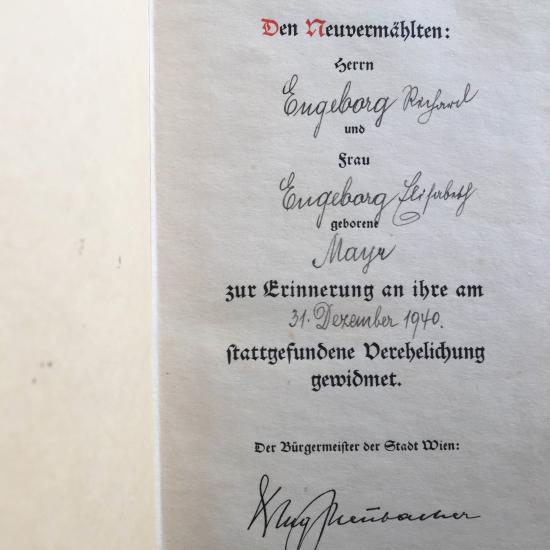 Den Neuvermählten:
Herrn
Engeborg Richard
und
Frau
Engeborg Elisabeth
geborene
Mayr
zur Erinnerung an ihre am
31. Dezember 1940.
stattgefundene Verehelichung
gewidmet.
Der Bürgermeister der Stadt Wien: